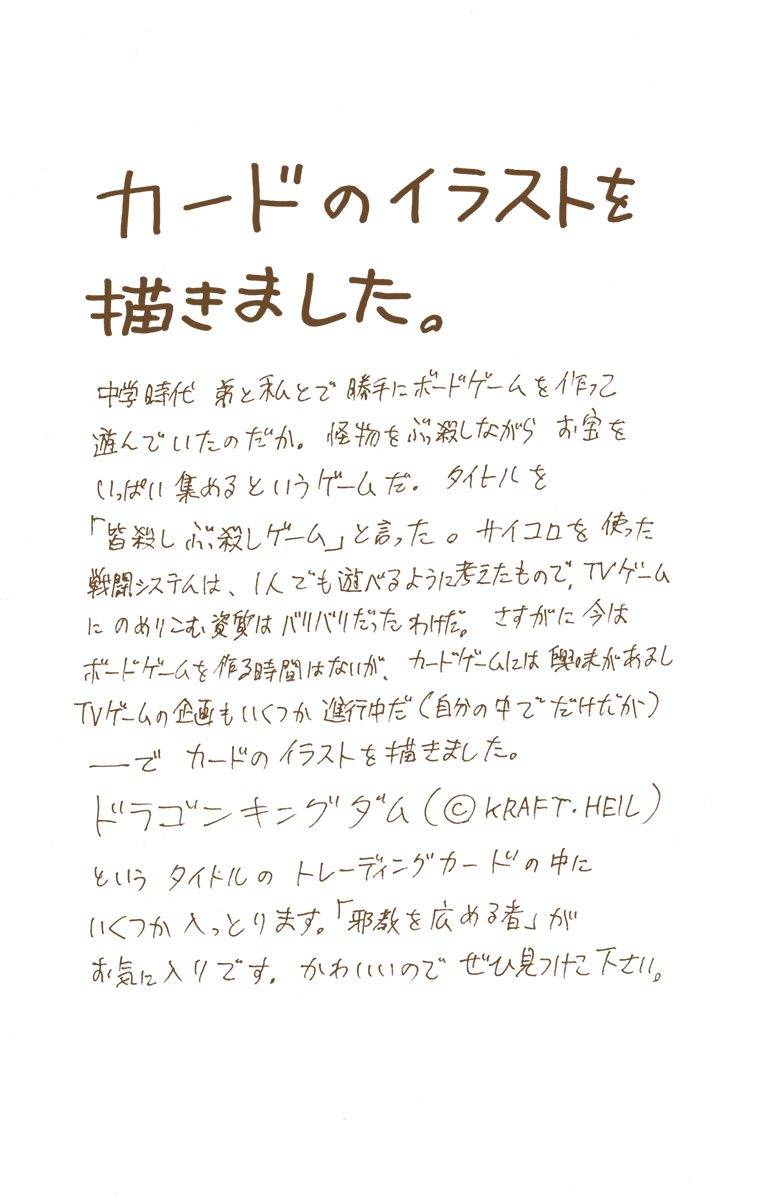 カードのイラストを
描きました。
中学時代 弟と私とで 勝手にボードゲームを作って
遊んでいたのだが。怪物をぶっ殺しながら お宝を
いっぱい集めるというゲームだ。タイトルを
「皆殺しぶっ殺しゲーム」と言った。サイコロを使った
戦闘システムは、1人でも遊べるように考えたもので、TVゲーム
にのめりこむ資質はバリバリだったわけだ。さすがに今は
ボードゲームを作る時間はないが、カードゲームには興味があるし
TVゲームの企画もいくつか進行中だ(自分の中でだけだが)
――で カードのイラストを描きました。
ドラゴンキングダム(©KRAFT・HEIL)
という タイトルの トレーディングカードの中に
いくつか入っとります。「邪教を広める者」が
お気に入りです。かわいいので ぜひ見つけて下さい。